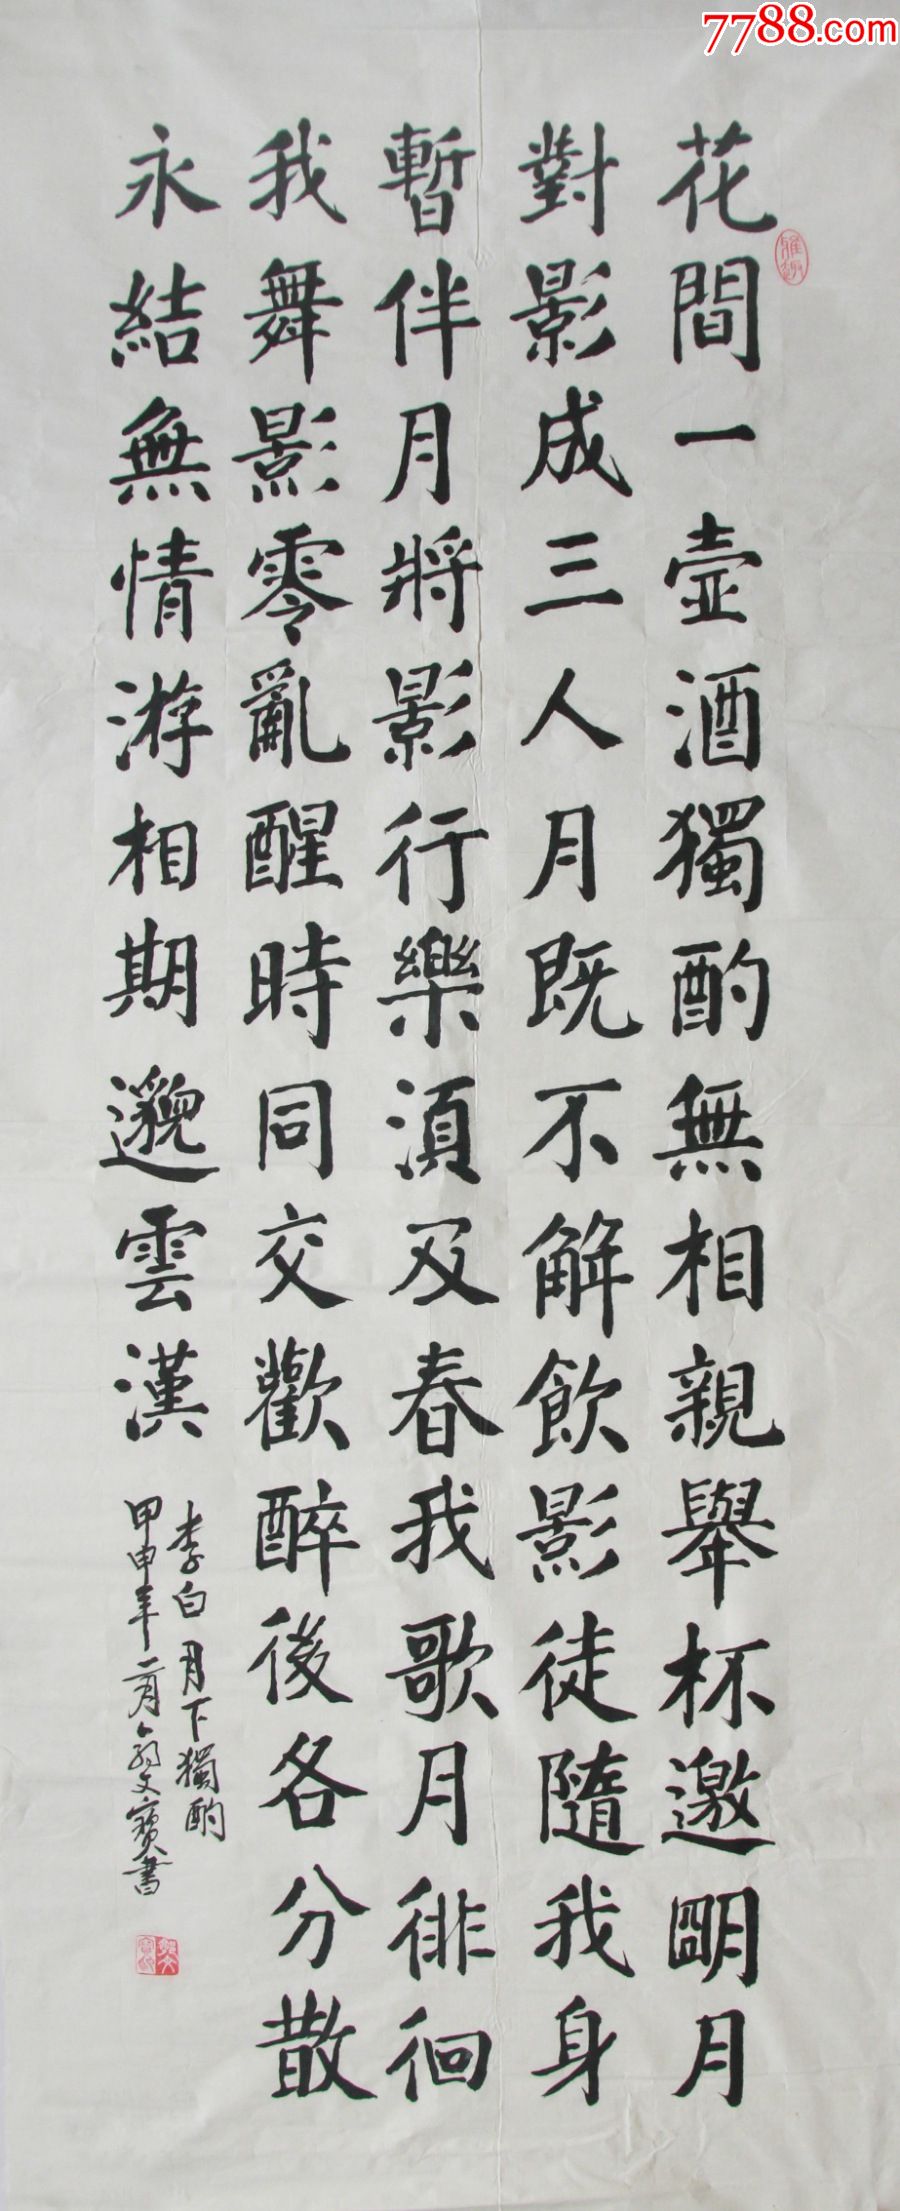 7788.com
花間一壺酒獨酌無相親舉杯邀明月
對影成三人月既不解飲影徒隨我身
暫伴月將影行樂須及春我歌月徘徊
我舞影零亂醒時同交歡醉後各分散
永結無情游相期邈雲漢
李白月下獨酌
甲申年二月翁文寶書